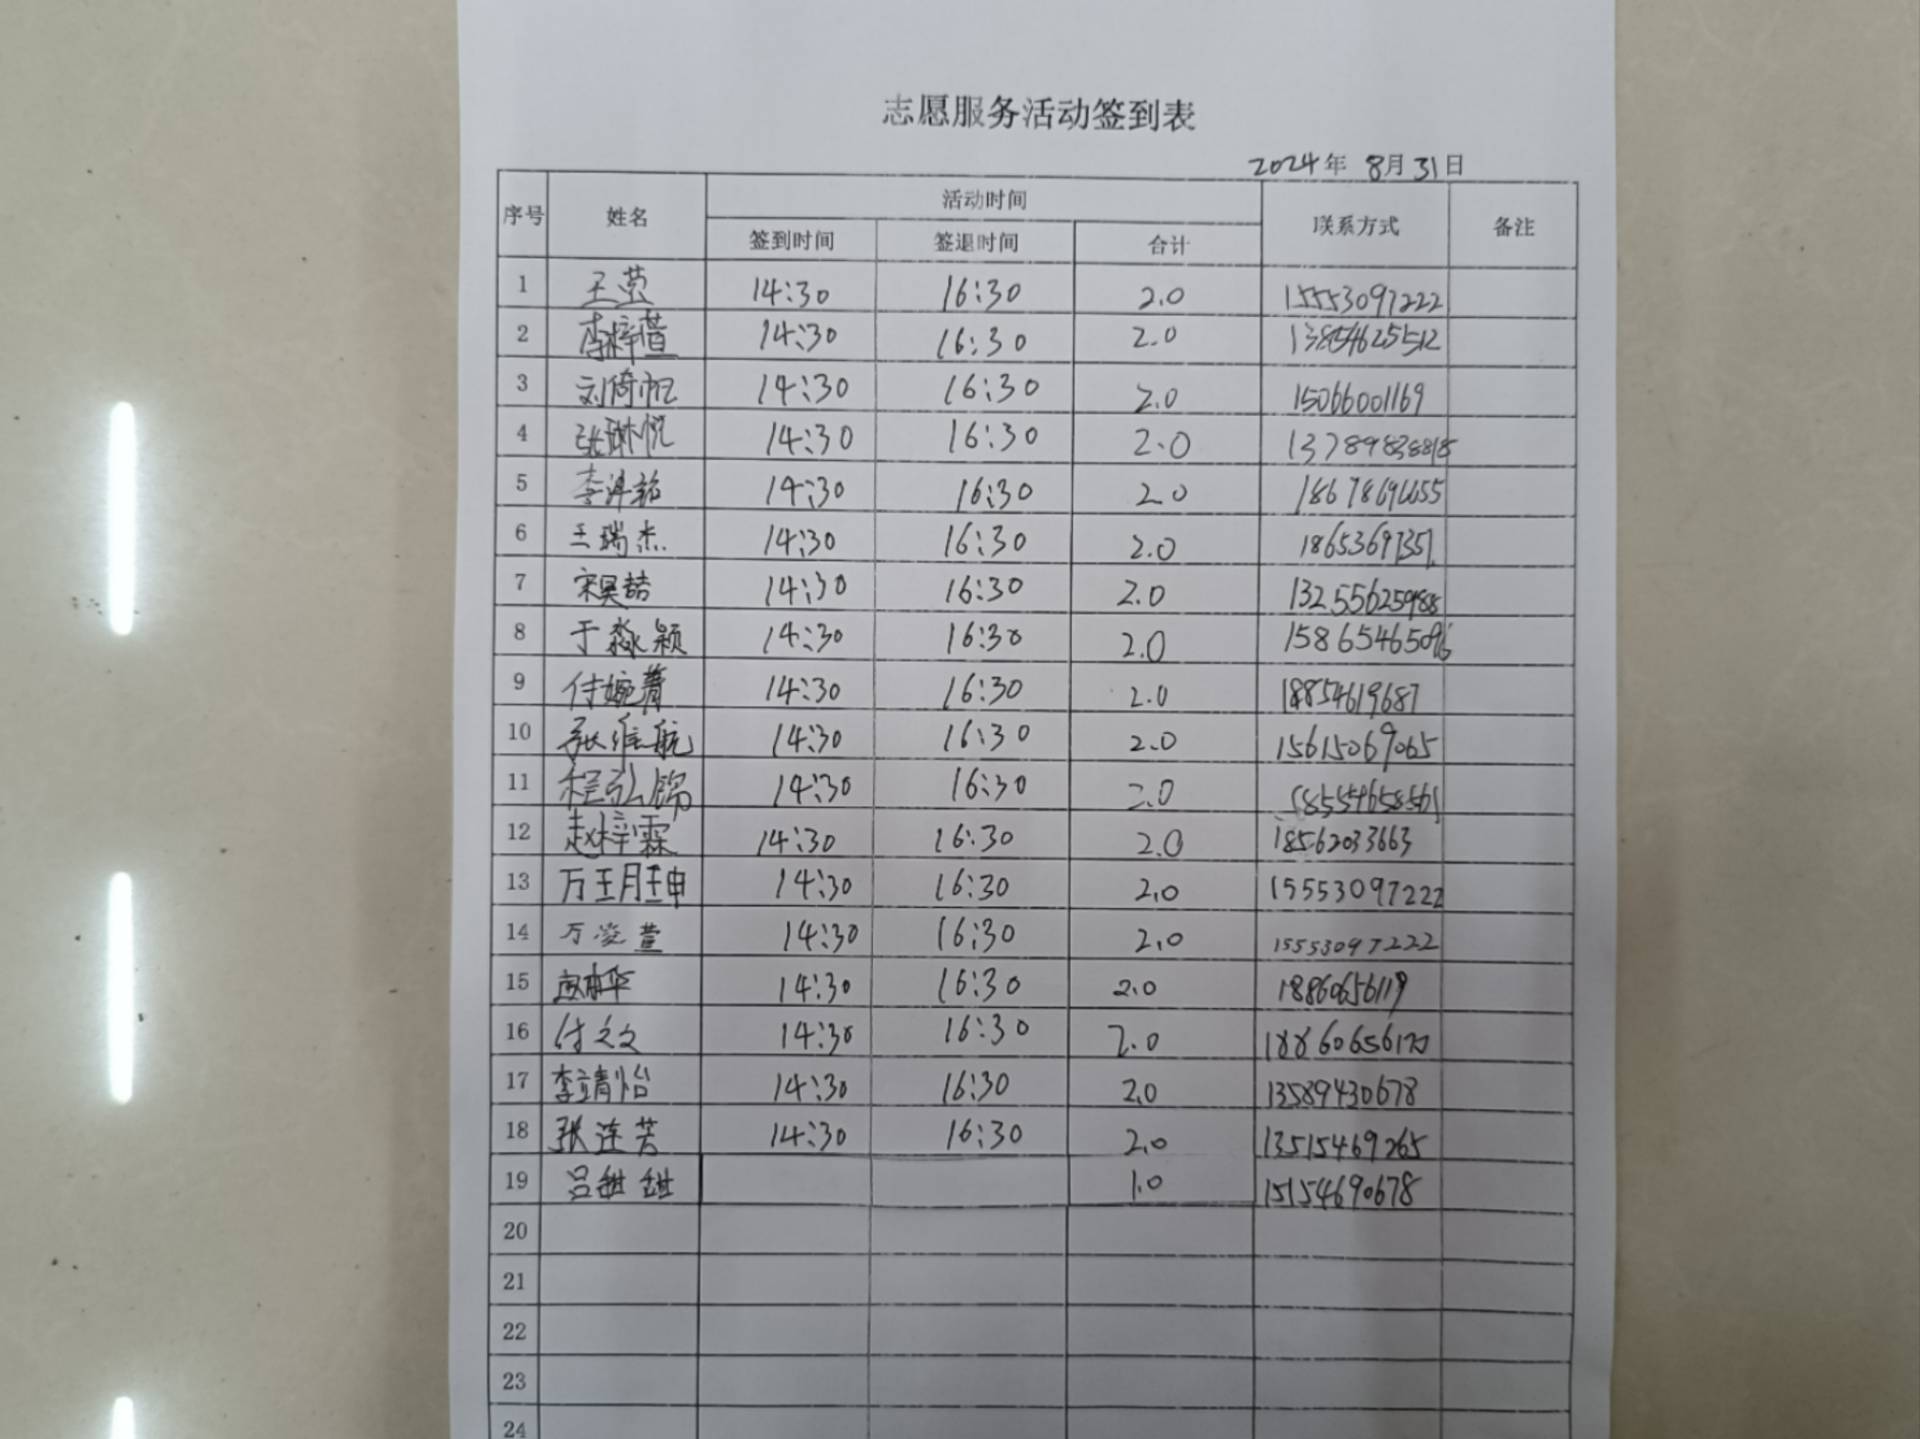 志愿服务活动签到表
2024年 8月31日
序号 姓名 活动时间 联系方式 备注
签到时间 签退时间 合计
1 王莹 14:30 16:30 2.0 15553097222
2 李梓萱 14:30 16:30 2.0 13854625512
3 刘倚帆 14:30 16:30 2.0 15066001169
4 张琳悦 14:30 16:30 2.0 13789838818
5 李泽铭 14:30 16:30 2.0
6 王瑞杰 14:30 16:30 2.0 18653697351
7 宋昊喆 14:30 16:30 2.0
8 于淼颖 14:30 16:30 2.0 15865465096
9 付婉菁 14:30 16:30 2.0 18854619687
10 张维航 14:30 16:30 2.0 15615069065
11 程弘锦 14:30 16:30 2.0
12 赵梓霖 14:30 16:30 2.0 18562033663
13 万玉月珅 14:30 16:30 2.0 15553097222
14 万凌萱 14:30 16:30 2.0 15553097222
15 14:30 16:30 2.0 18860656119
16 付文文 14:30 16:30 2.0
17 李靖怡 14:30 16:30 2.0 13589430678
18 张连芳 14:30 16:30 2.0 13515469265
19 吕甜甜 1.0 15154690678
20
21
22
23
24